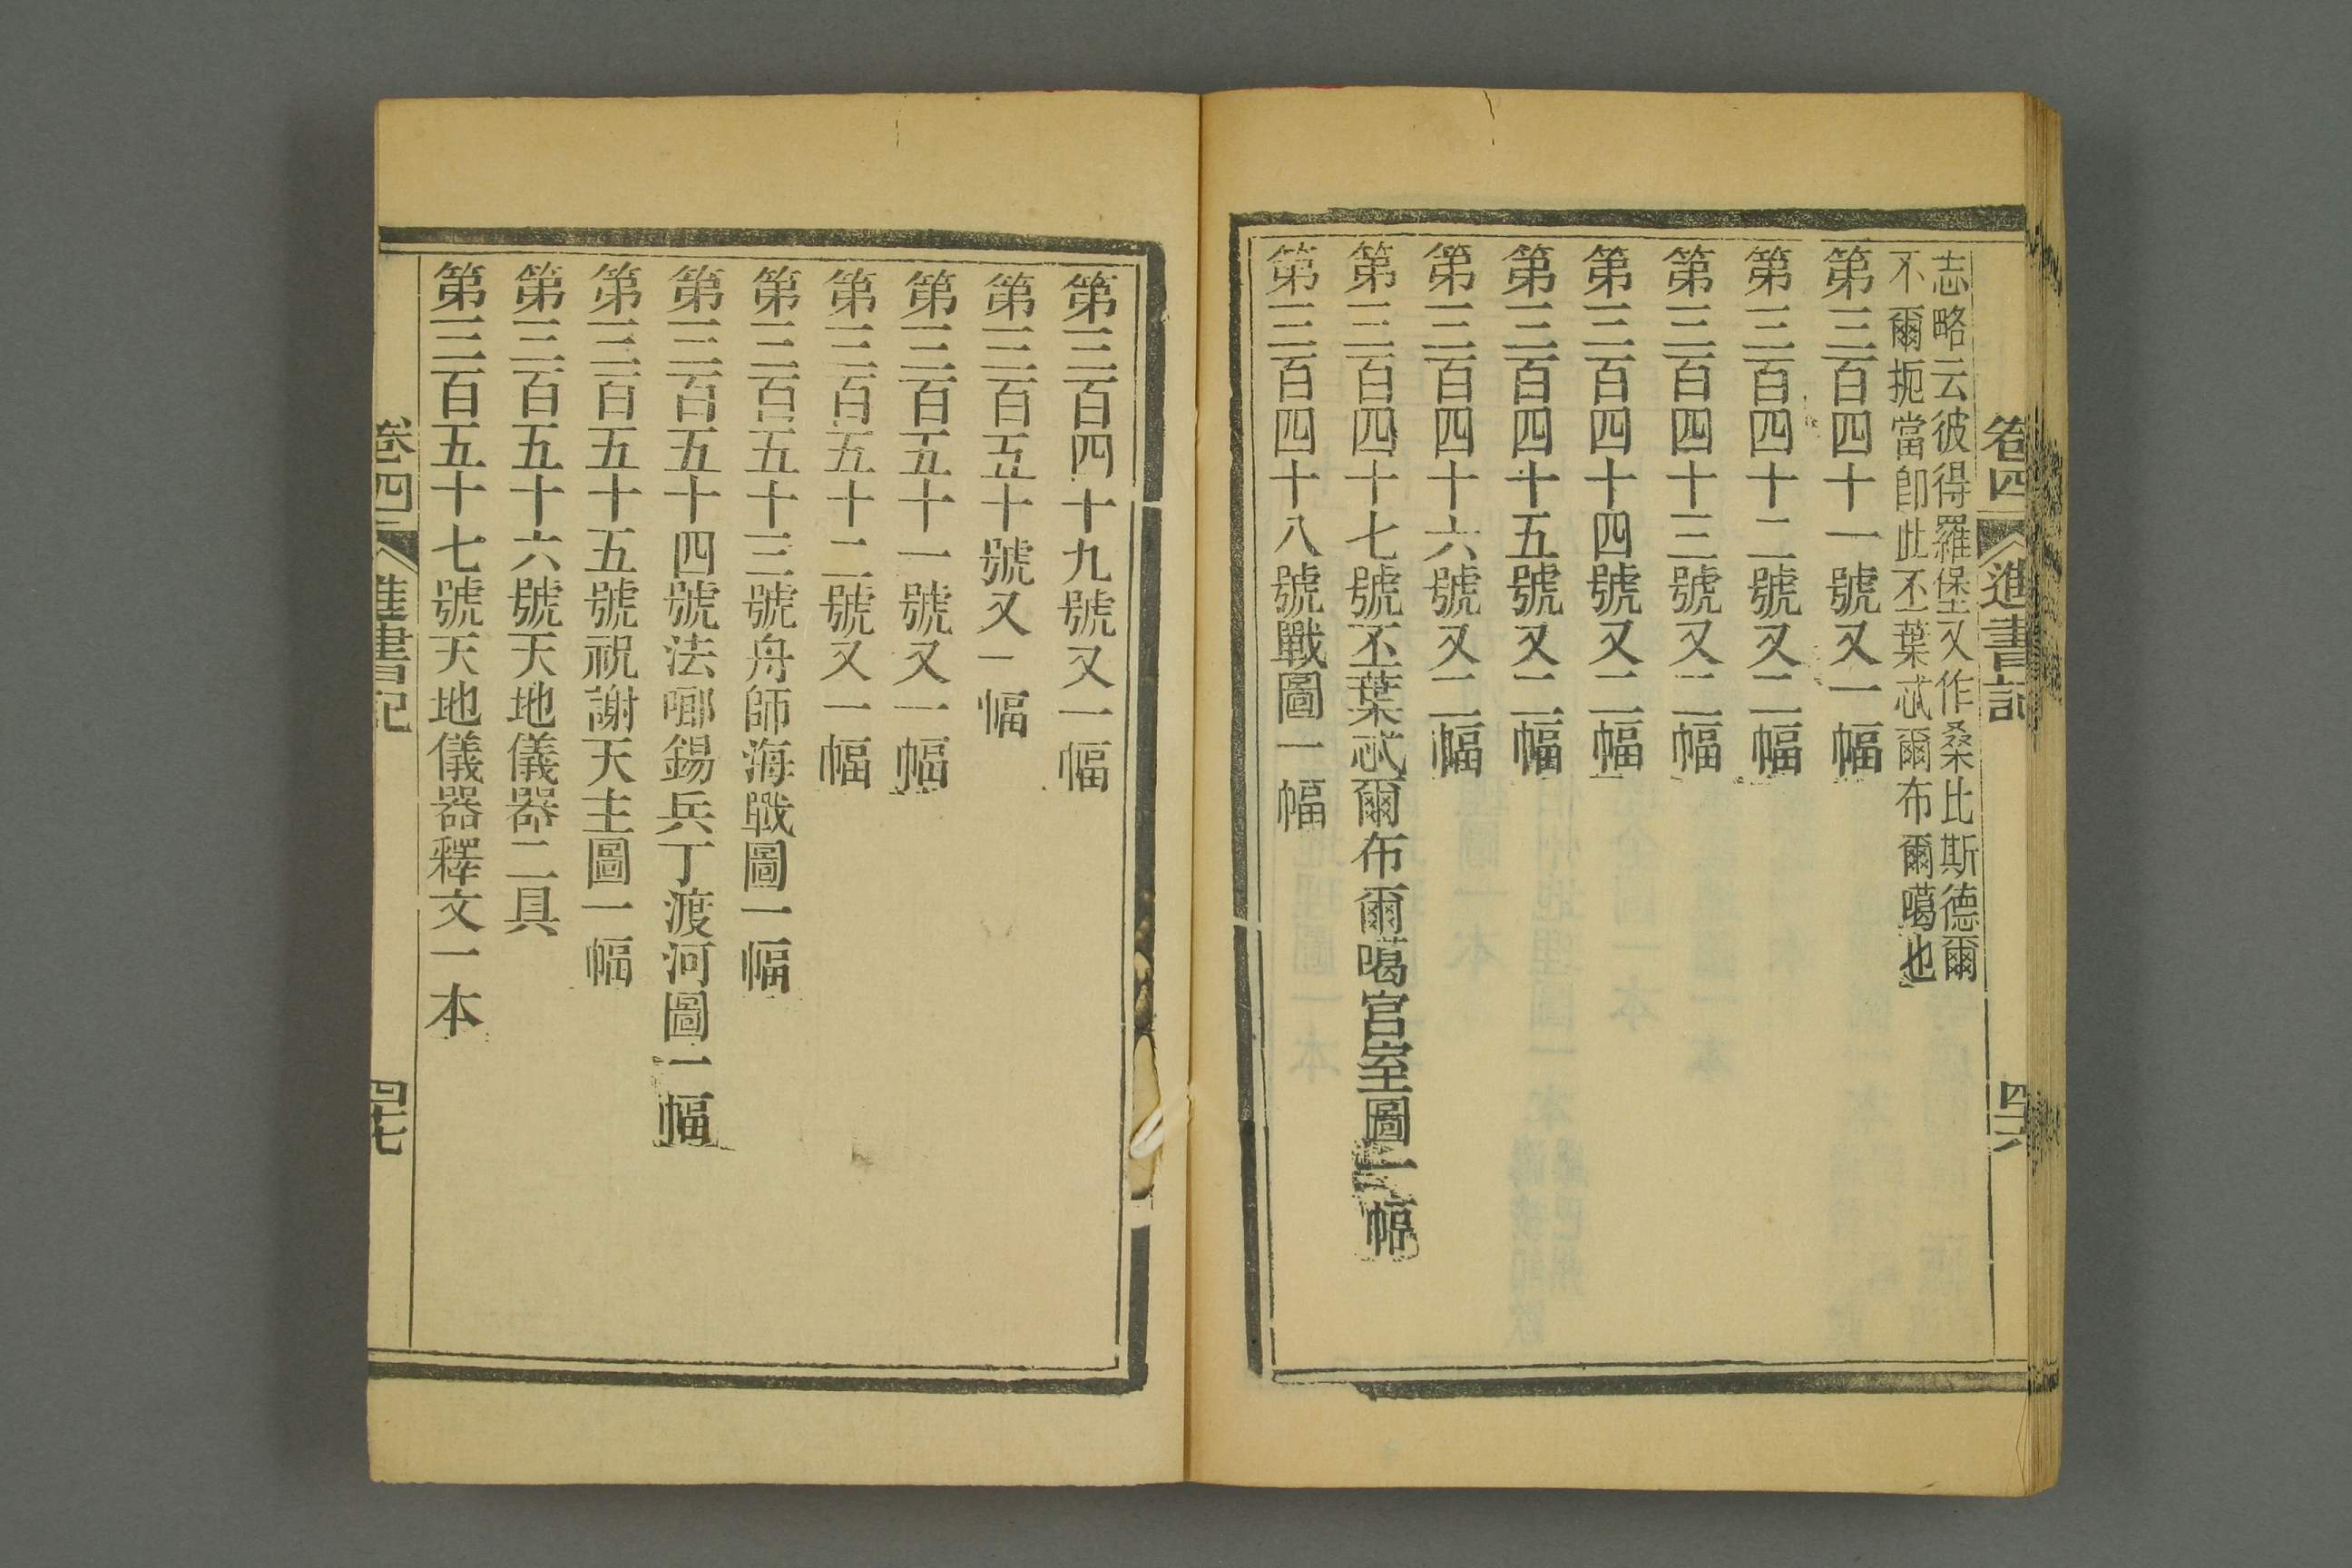 志略云彼得羅堡又作桑比斯德爾
不爾扼當卽此丕葉忒爾布爾噶也
第三百四十一號又一幅
第三百四十二號又二幅
第三百四十三號又二幅
第三百四十四號又二幅
第三百四十五號又二幅
第三百四十六號又二幅
第三百四十七號丕葉忒爾布爾噶宫室圖二幅
第三百四十八號戰圖一幅
卷四
進書記
四六
第三百四十九號又一幅
第三百五十號又一幅
第三百五十一號又一幅
第三百五十二號又一幅
第三百五十三號舟師海戰圖一幅
第三百五十四號法啷錫兵丁渡河圖一幅
第三百五十五號祝謝天主圖一幅
第三百五十六號天地儀器二具
第三百五十七號天地儀器釋文一本
卷四
進書記
四七